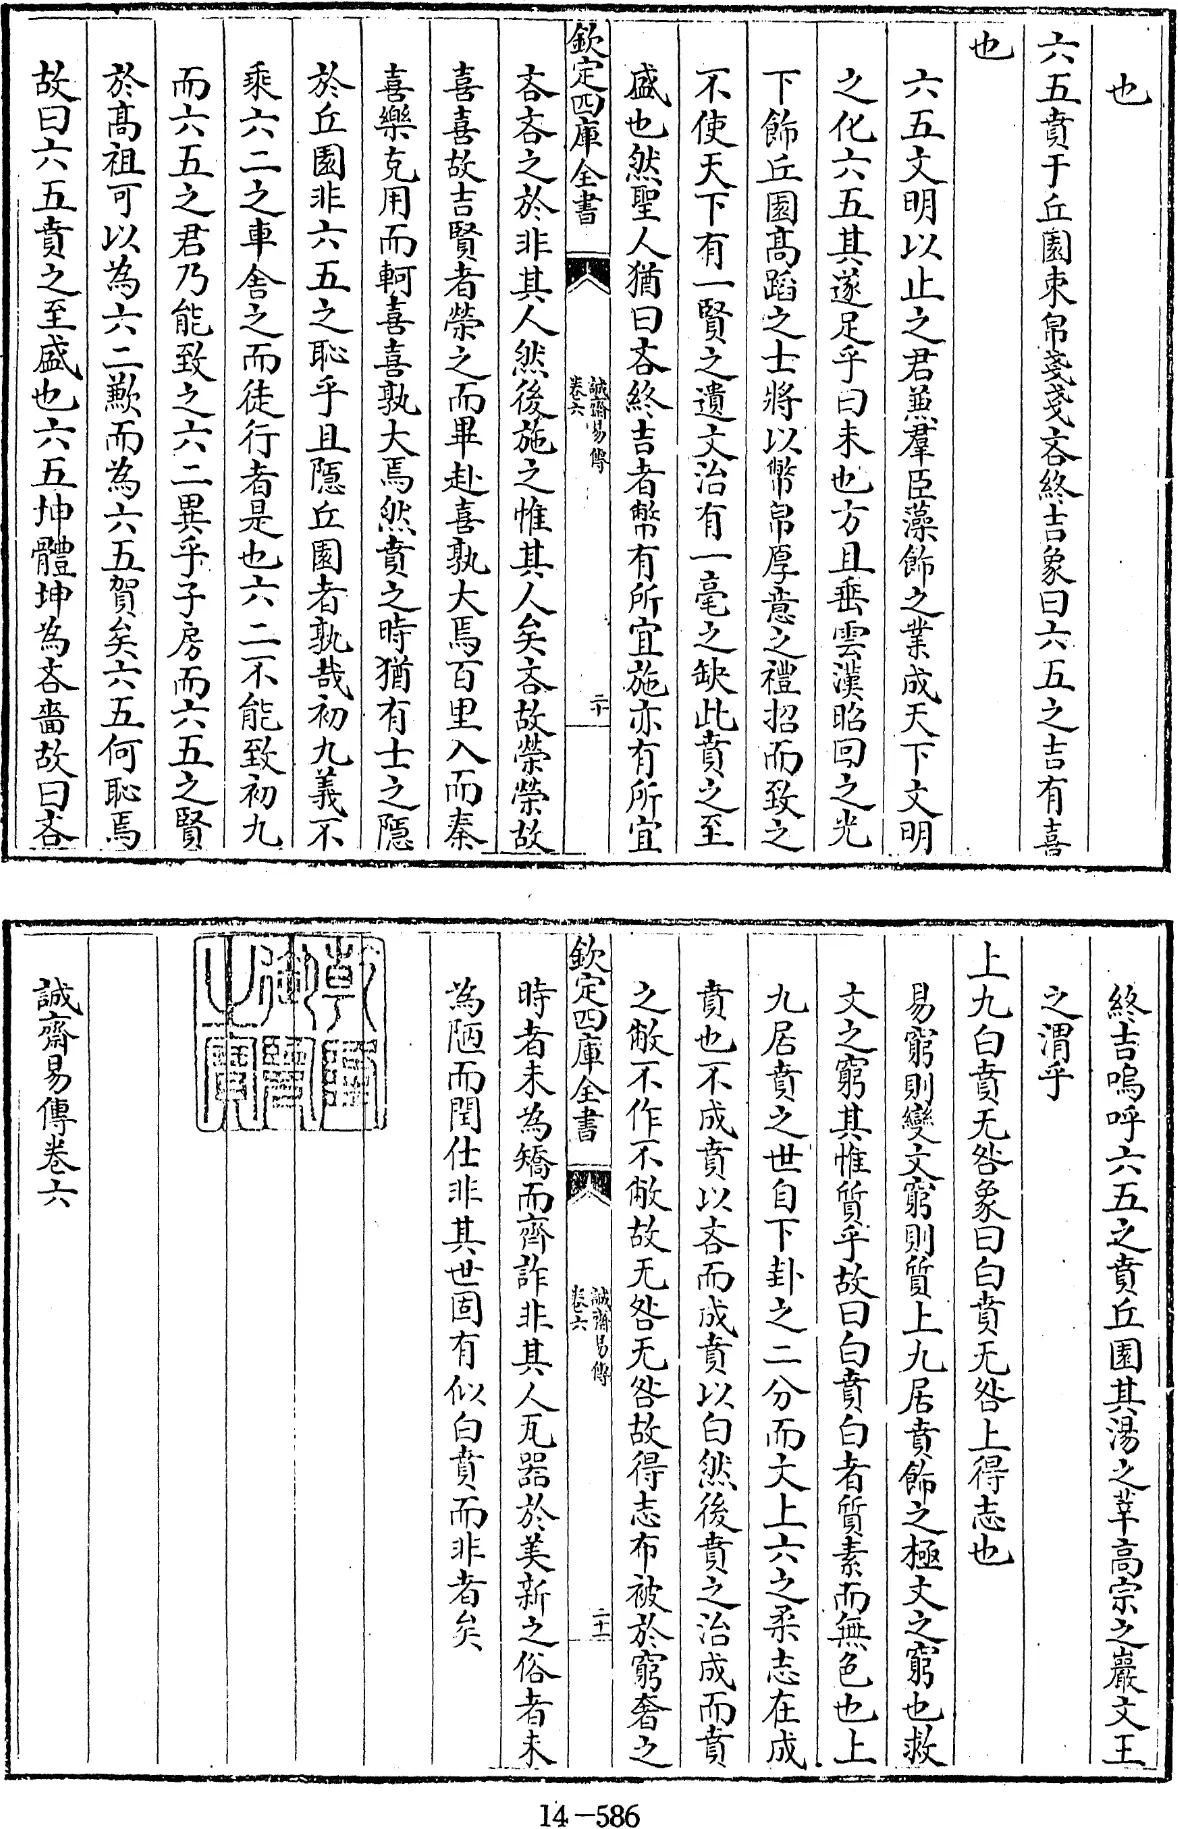 也
六五賁于丘園束帛戔戔吝終吉象曰六五之吉有喜
也
六五文明以止之君兼羣臣藻飾之業成天下文明
之化六五其遂足乎曰未也方且垂雲漢昭回之光
下飾丘園髙蹈之士將以幣帛厚意之禮招而致之
不使天下有一賢之遺文治有一毫之缺此賁之至
盛也然聖人猶曰吝終吉者幣有所宜施亦有所宜
欽定四庫全書
誠齋易傳
卷六
二十
吝吝之於非其人然後施之惟其人矣吝故榮榮故
喜喜故吉賢者榮之而畢赴喜孰大焉百里入而秦
喜樂克用而軻喜喜孰大焉然賁之時猶有士之隠
於丘園非六五之恥乎且隠丘園者孰哉初九義不
乘六二之車舎之而徒行者是也六二不能致初九
而六五之君乃能致之六二異乎子房而六五之賢
於髙祖可以為六二歉而為六五賀矣六五何恥焉
故曰六五賁之至盛也六五坤體坤為吝嗇故曰吝
終吉嗚呼六五之賁丘園其湯之莘高宗之巖文王
之渭乎
上九白賁无咎象曰白賁无咎上得志也
易窮則變文窮則質上九居賁飾之極文之窮也救
文之窮其惟質乎故曰白賁白者質素而無色也上
九居賁之世自下卦之二分而文上六之柔志在成
賁也不成賁以吝而成賁以白然後賁之治成而賁
之敝不作不敝故无咎无咎故得志布被於窮奢之
欽定四庫全書
誠齋易傳
卷六
二十一
時者未為矯而齊詐非其人瓦器於美新之俗者未
為陋而閏仕非其世固有似白賁而非者矣
乾隆御覽之寶
誠齋易傳卷六
14-586